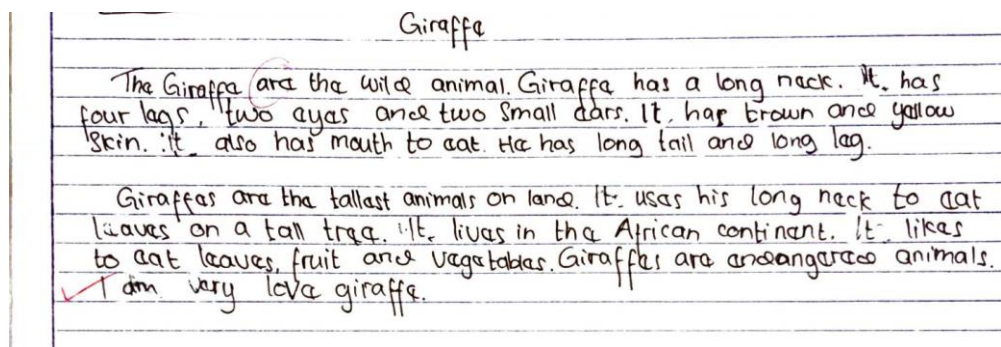 Giraffe
The Giraffe are the wild animal. Giraffe has a long neck. It. has
four legs, two eyes and two small ears. It, has brown and yellow
skin. It also has mouth to eat. He has long tail and long leg.
Giraffes are the tallest animals on land. It. uses his long neck to eat
leaves on a tall tree. It, lives in the African continent. It likes
to eat leaves, fruit and vegetables. Giraffes are andangered animals.
I am very love giraffe.